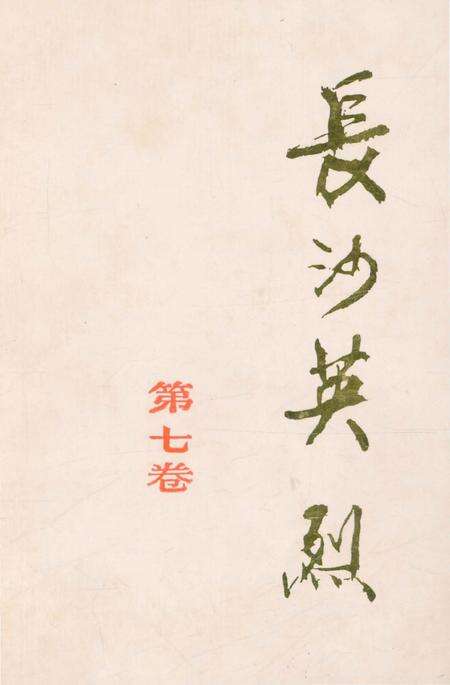 長沙英烈
第七卷